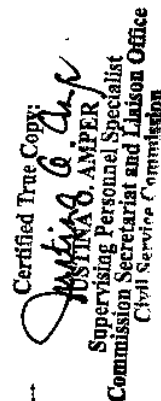 Certified True Copy:
JUSTINA O. AMPER
Supervising Personnel Specialist
Commission Secretariat and Liaison Office
Civil Service Commission